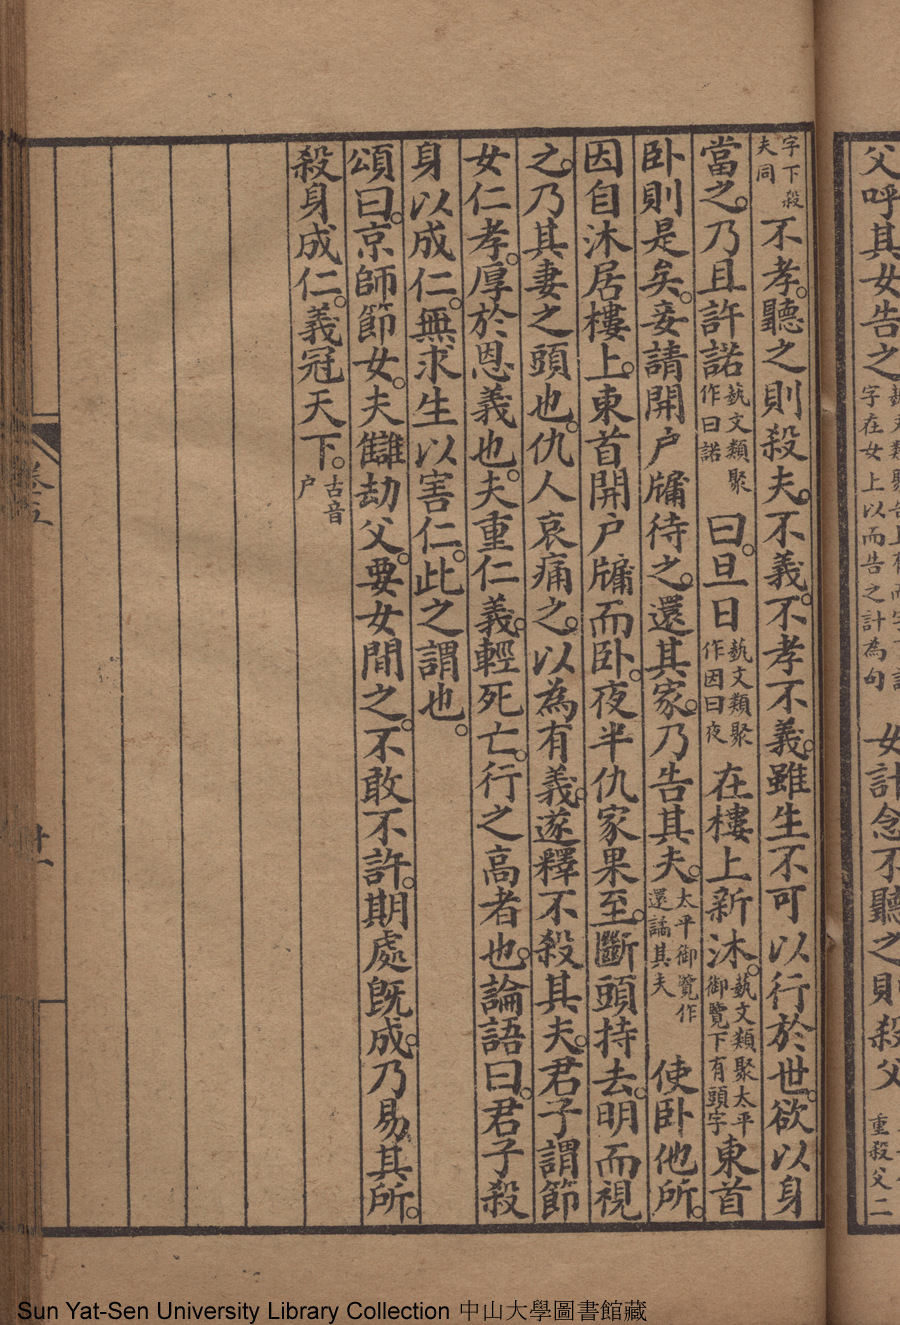 父呼其女告之
女計念不聽之則殺父
重殺父二
字下殺夫同不孝。聽之則殺夫。不義。不孝不義。雖生不可以行於世。欲以身
當之。乃且許諾藝文類聚作曰諾曰。旦日藝文類聚作因曰夜在樓上新沐。藝文類聚太平御覽下有頭字東首
卧則是矣。妾請開户牖待之。還其家。乃告其夫。太平御覽作還譎其夫使卧他所。
因自沐居樓上。東首開户牖而卧。夜半仇家果至。斷頭持去。明而視
之。乃其妻之頭也。仇人哀痛之。以為有義。遂釋不殺其夫。君子謂節
女仁孝。厚於恩義也。夫重仁義。輕死亡。行之高者也。論語曰。君子殺
身以成仁。無求生以害仁。此之謂也。
頌曰。京師節女。夫讎劫父。要女閒之。不敢不許。期處既成。乃易其所。
殺身成仁。義冠天下。古音户
卷五
廿一
Sun Yat-Sen University Library Collection 中山大學圖書館藏